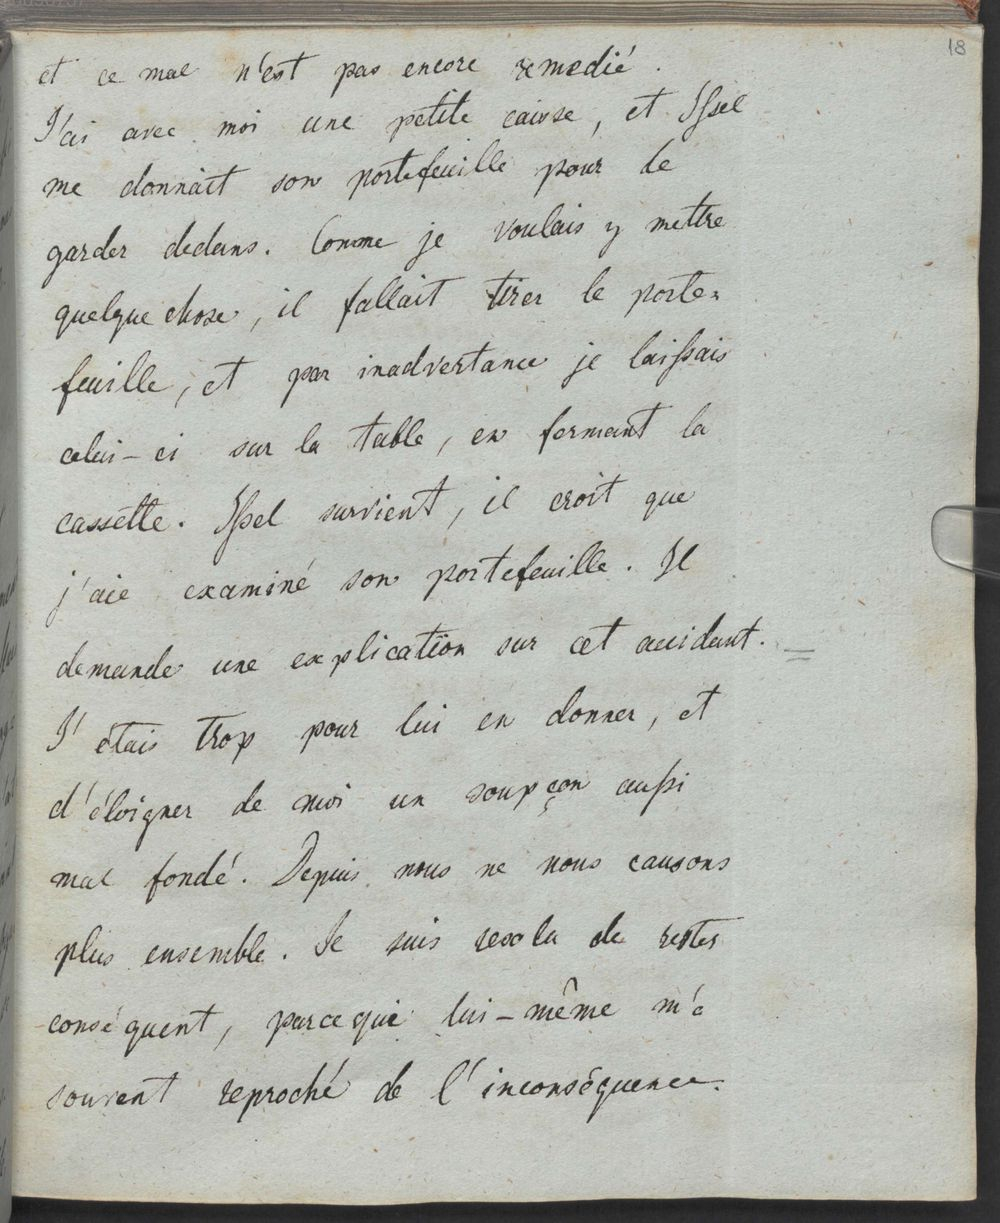 18
et ce mal n'est pas encore remedié.
J'ai avec moi une petite caisse, et Issel
me donnait son portefeuille pour le
garder dedans. Comme je voulais y mettre
quelque chose, il fallait tirer le porte=
feuille, et par inadvertance je laissais
celui-ci sur la table, en fermant la
cassette. Issel survient, il croit que
j'aie examiné son portefeuille. Il
demande une explicatïon sur cet accidant.
J'étais trop pour lui en donner, et
d'éloigner de moi un soupçon aussi
mal fondé. Depuis nous ne nous causons
plus ensemble. Je suis resolu de rester
conséquent, parceque lui-même m'a
souvent reproché de l'inconséquence.